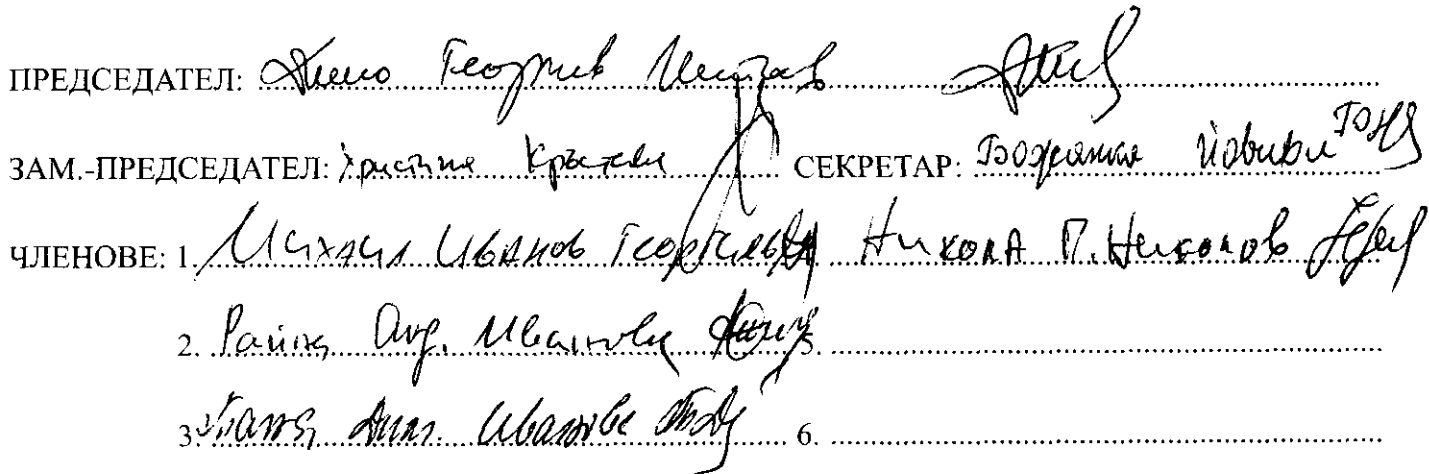 ПРЕДСЕДАТЕЛ: Георгиев
ЗАМ.-ПРЕДСЕДАТЕЛ: Христина Кръстева СЕКРЕТАР: Божанка
ЧЛЕНОВЕ: 1. Михаил Иванов Георгиев Никола П. Николов
2. Райна Анд. Иванова 5.
3. Таня Дим. Иванова 6.